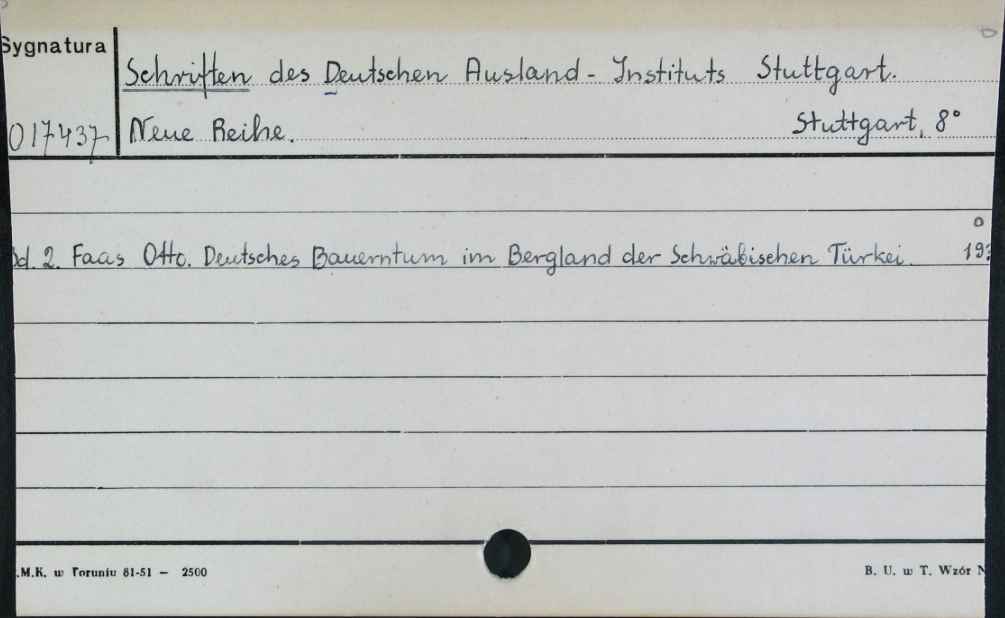 Sygnatura
Schriften des Deutschen Ausland - Instituts Stuttgart.
017437
Neue Reihe. Stuttgart, 8°
Bd. 2. Faas Otto. Deutsches Bauerntum im Bergland der Schwäbischen Türkei.
.M.K. w Toruniu 81-51 — 2500
B. U. w T. Wzór N